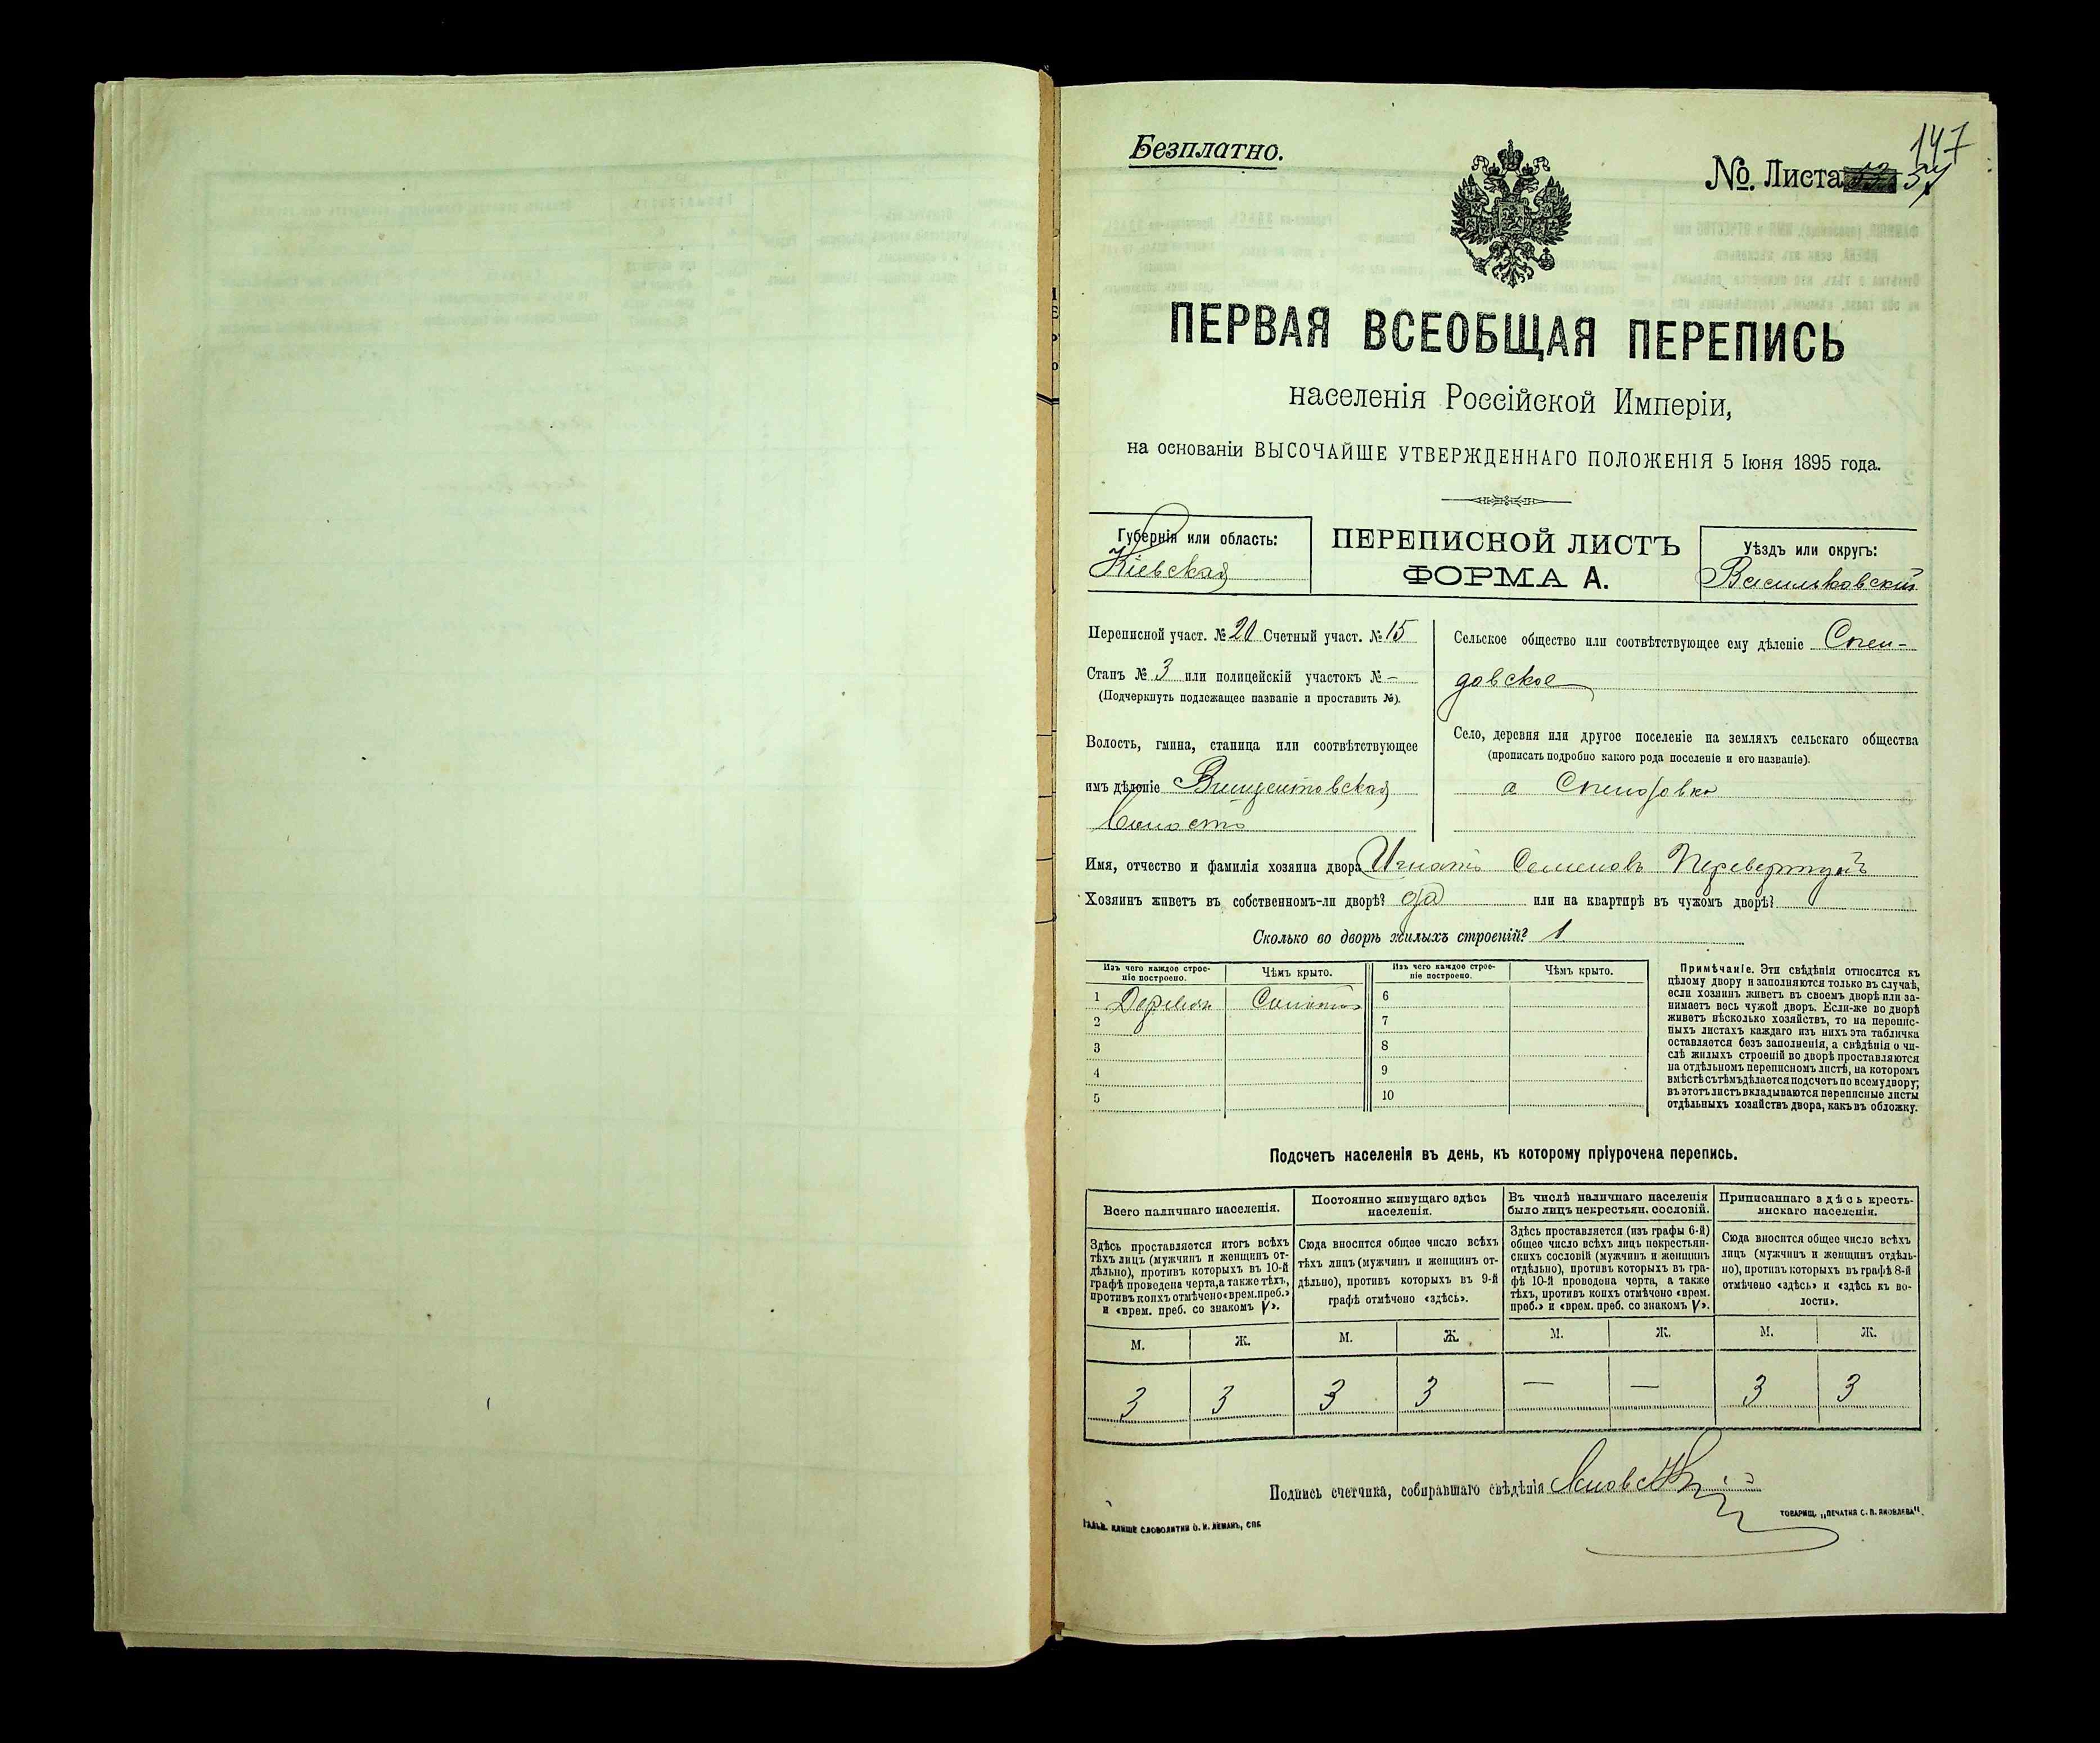 147
Безплатно.
№ Листа 34
ПЕРВАЯ ВСЕОБЩАЯ ПЕРЕПИСЬ
населенія Россійской Имперіи,
на основаніи ВЫСОЧАЙШЕ УТВЕРЖДЕННАГО ПОЛОЖЕНІЯ 5 Іюня 1895 года.
Губернія или область:
Кіевская
ПЕРЕПИСНОЙ ЛИСТЪ
ФОРМА А.
Уѣздъ или округъ:
Васильковскій
Переписной участ. № 20 Счетный участ. № 15
Станъ № 3 или полицейскій участокъ № –
(Подчеркнуть подлежащее названіе и проставить №).
Волость, гмина, станица или соотвѣтствующее
имъ дѣленіе Винцентовская
волость
Сельское общество или соотвѣтствующее ему дѣленіе Спен-
довское
Село, деревня или другое поселеніе на земляхъ сельскаго общества
(прописать подробно какого рода поселеніе и его названіе).
Спендовка
Имя, отчество и фамилія хозяина двора Игнатъ Семеновъ Перевертунъ
Хозяинъ живетъ въ собственномъ-ли дворѣ? да или на квартирѣ въ чужомъ дворѣ?
Сколько во дворѣ жилыхъ строеній? 1
Изъ чего каждое строе-
ніе построено.
Чѣмъ крыто.
Изъ чего каждое строе-
ніе построено.
Чѣмъ крыто.
1 Дерева Солома 6
2 7
3 8
4 9
5 10
Примѣчаніе. Эти свѣдѣнія относятся къ
цѣлому двору и заполняются только въ случаѣ,
если хозяинъ живетъ въ своемъ дворѣ или за-
нимаетъ весь чужой дворъ. Если-же во дворѣ
живетъ нѣсколько хозяйствъ, то на перепис-
ныхъ листахъ каждаго изъ нихъ эта табличка
оставляется безъ заполненія, а свѣдѣнія о чи-
слѣ жилыхъ строеній во дворѣ проставляются
на отдѣльномъ переписномъ листѣ, на которомъ
вмѣстѣ съ тѣмъ дѣлается подсчетъ по всему двору;
въ этотъ листъ вкладываются переписные листы
отдѣльныхъ хозяйствъ двора, какъ въ обложку.
Подсчетъ населенія въ день, къ которому пріурочена перепись.
Всего наличнаго населенія.
Здѣсь проставляется итогъ всѣхъ
тѣхъ лицъ (мужчинъ и женщинъ от-
дѣльно), противъ которыхъ въ 10-й
графѣ проведена черта, а также тѣхъ,
противъ коихъ отмѣчено «врем. преб.»
и «врем. преб. со знакомъ V».
Постоянно живущаго здѣсь
населенія.
Сюда вносится общее число всѣхъ
тѣхъ лицъ (мужчинъ и женщинъ от-
дѣльно), противъ которыхъ въ 9-й
графѣ отмѣчено «здѣсь».
Въ числѣ наличнаго населенія
было лицъ некрестьян. сословій.
Здѣсь проставляется (изъ графы 6-й)
общее число всѣхъ лицъ некрестьян-
скихъ сословій (мужчинъ и женщинъ
отдѣльно), противъ которыхъ въ гра-
фѣ 10-й проведена черта, а также
тѣхъ, противъ коихъ отмѣчено «врем.
преб.» и «врем. преб. со знакомъ V».
Приписаннаго здѣсь кресть-
янскаго населенія.
Сюда вносится общее число всѣхъ
лицъ (мужчинъ и женщинъ отдѣль-
но), противъ которыхъ въ графѣ 8-й
отмѣчено «здѣсь» и «здѣсь къ во-
лости».
М. Ж. М. Ж. М. Ж. М. Ж.
3 3 3 3 — — 3 3
Подпись счетчика, собиравшаго свѣдѣнія
КЛИШЕ СЛОВОЛИТНИ О. И. ЛЕМАНЪ, СПБ
ТОВАРИЩ. „ПЕЧАТНЯ С. П. ЯКОВЛЕВА".